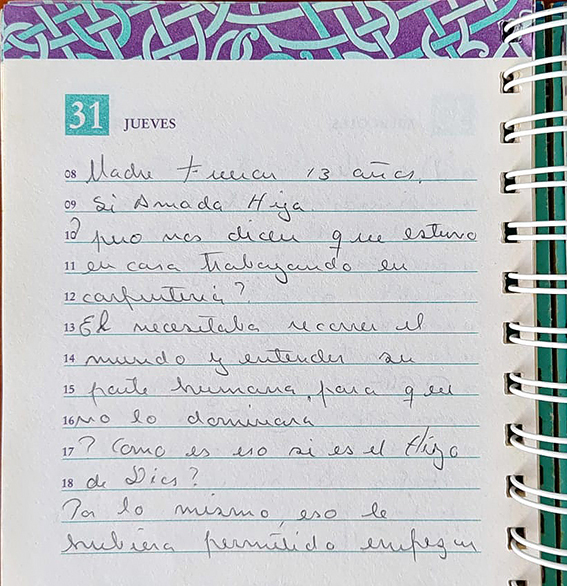 31 JUEVES
08 Madre tenia 13 años.
09 Si Amada Hija.
10 ? pero nos dicen que estuvo
11 en casa trabajando en
12 carpinteria?
13 El necesitaba recorrer el
14 mundo y entender su
15 parte humana, para que
16 no lo dominara
17 ? Como es eso si es el Hijo
18 de Dios?
Por lo mismo, eso le
hubiera permitido empezar